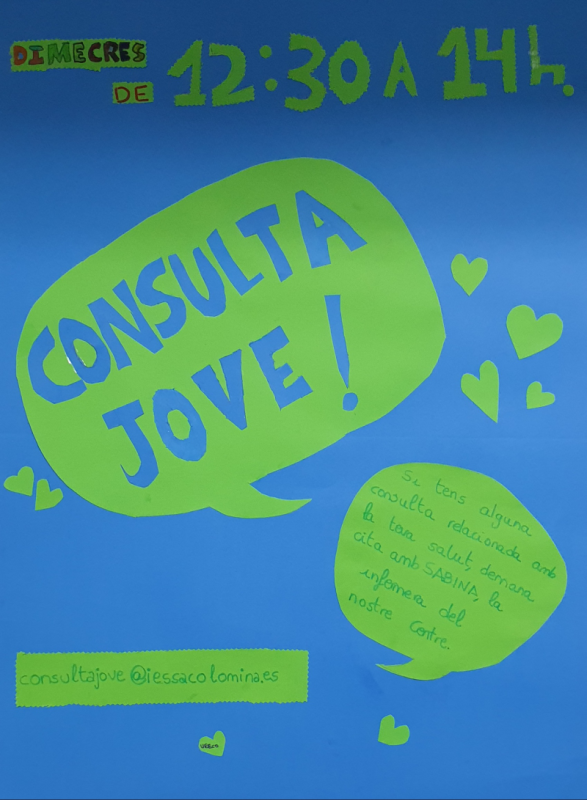 DIMECRES
DE 12:30 A 14h.
CONSULTA
JOVE!
Si tens alguna
consulta relacionada amb
la teva salut, demana
cita amb SABINA, la
infermera del
nostre Centre.
consultajove@iessacolomina.es